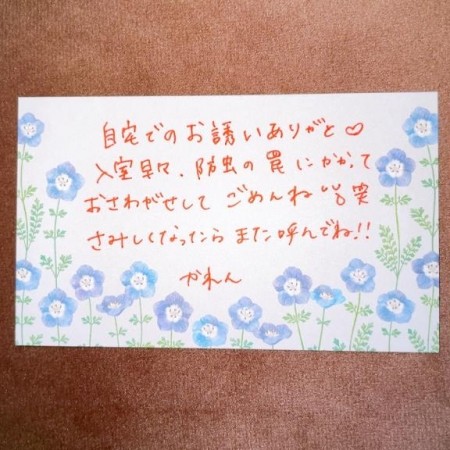 自宅でのお誘いありがと♡
入室早々、防虫の罠にかかって
おさわがせして ごめんね 笑
さみしくなったら また呼んでね!!
かれん